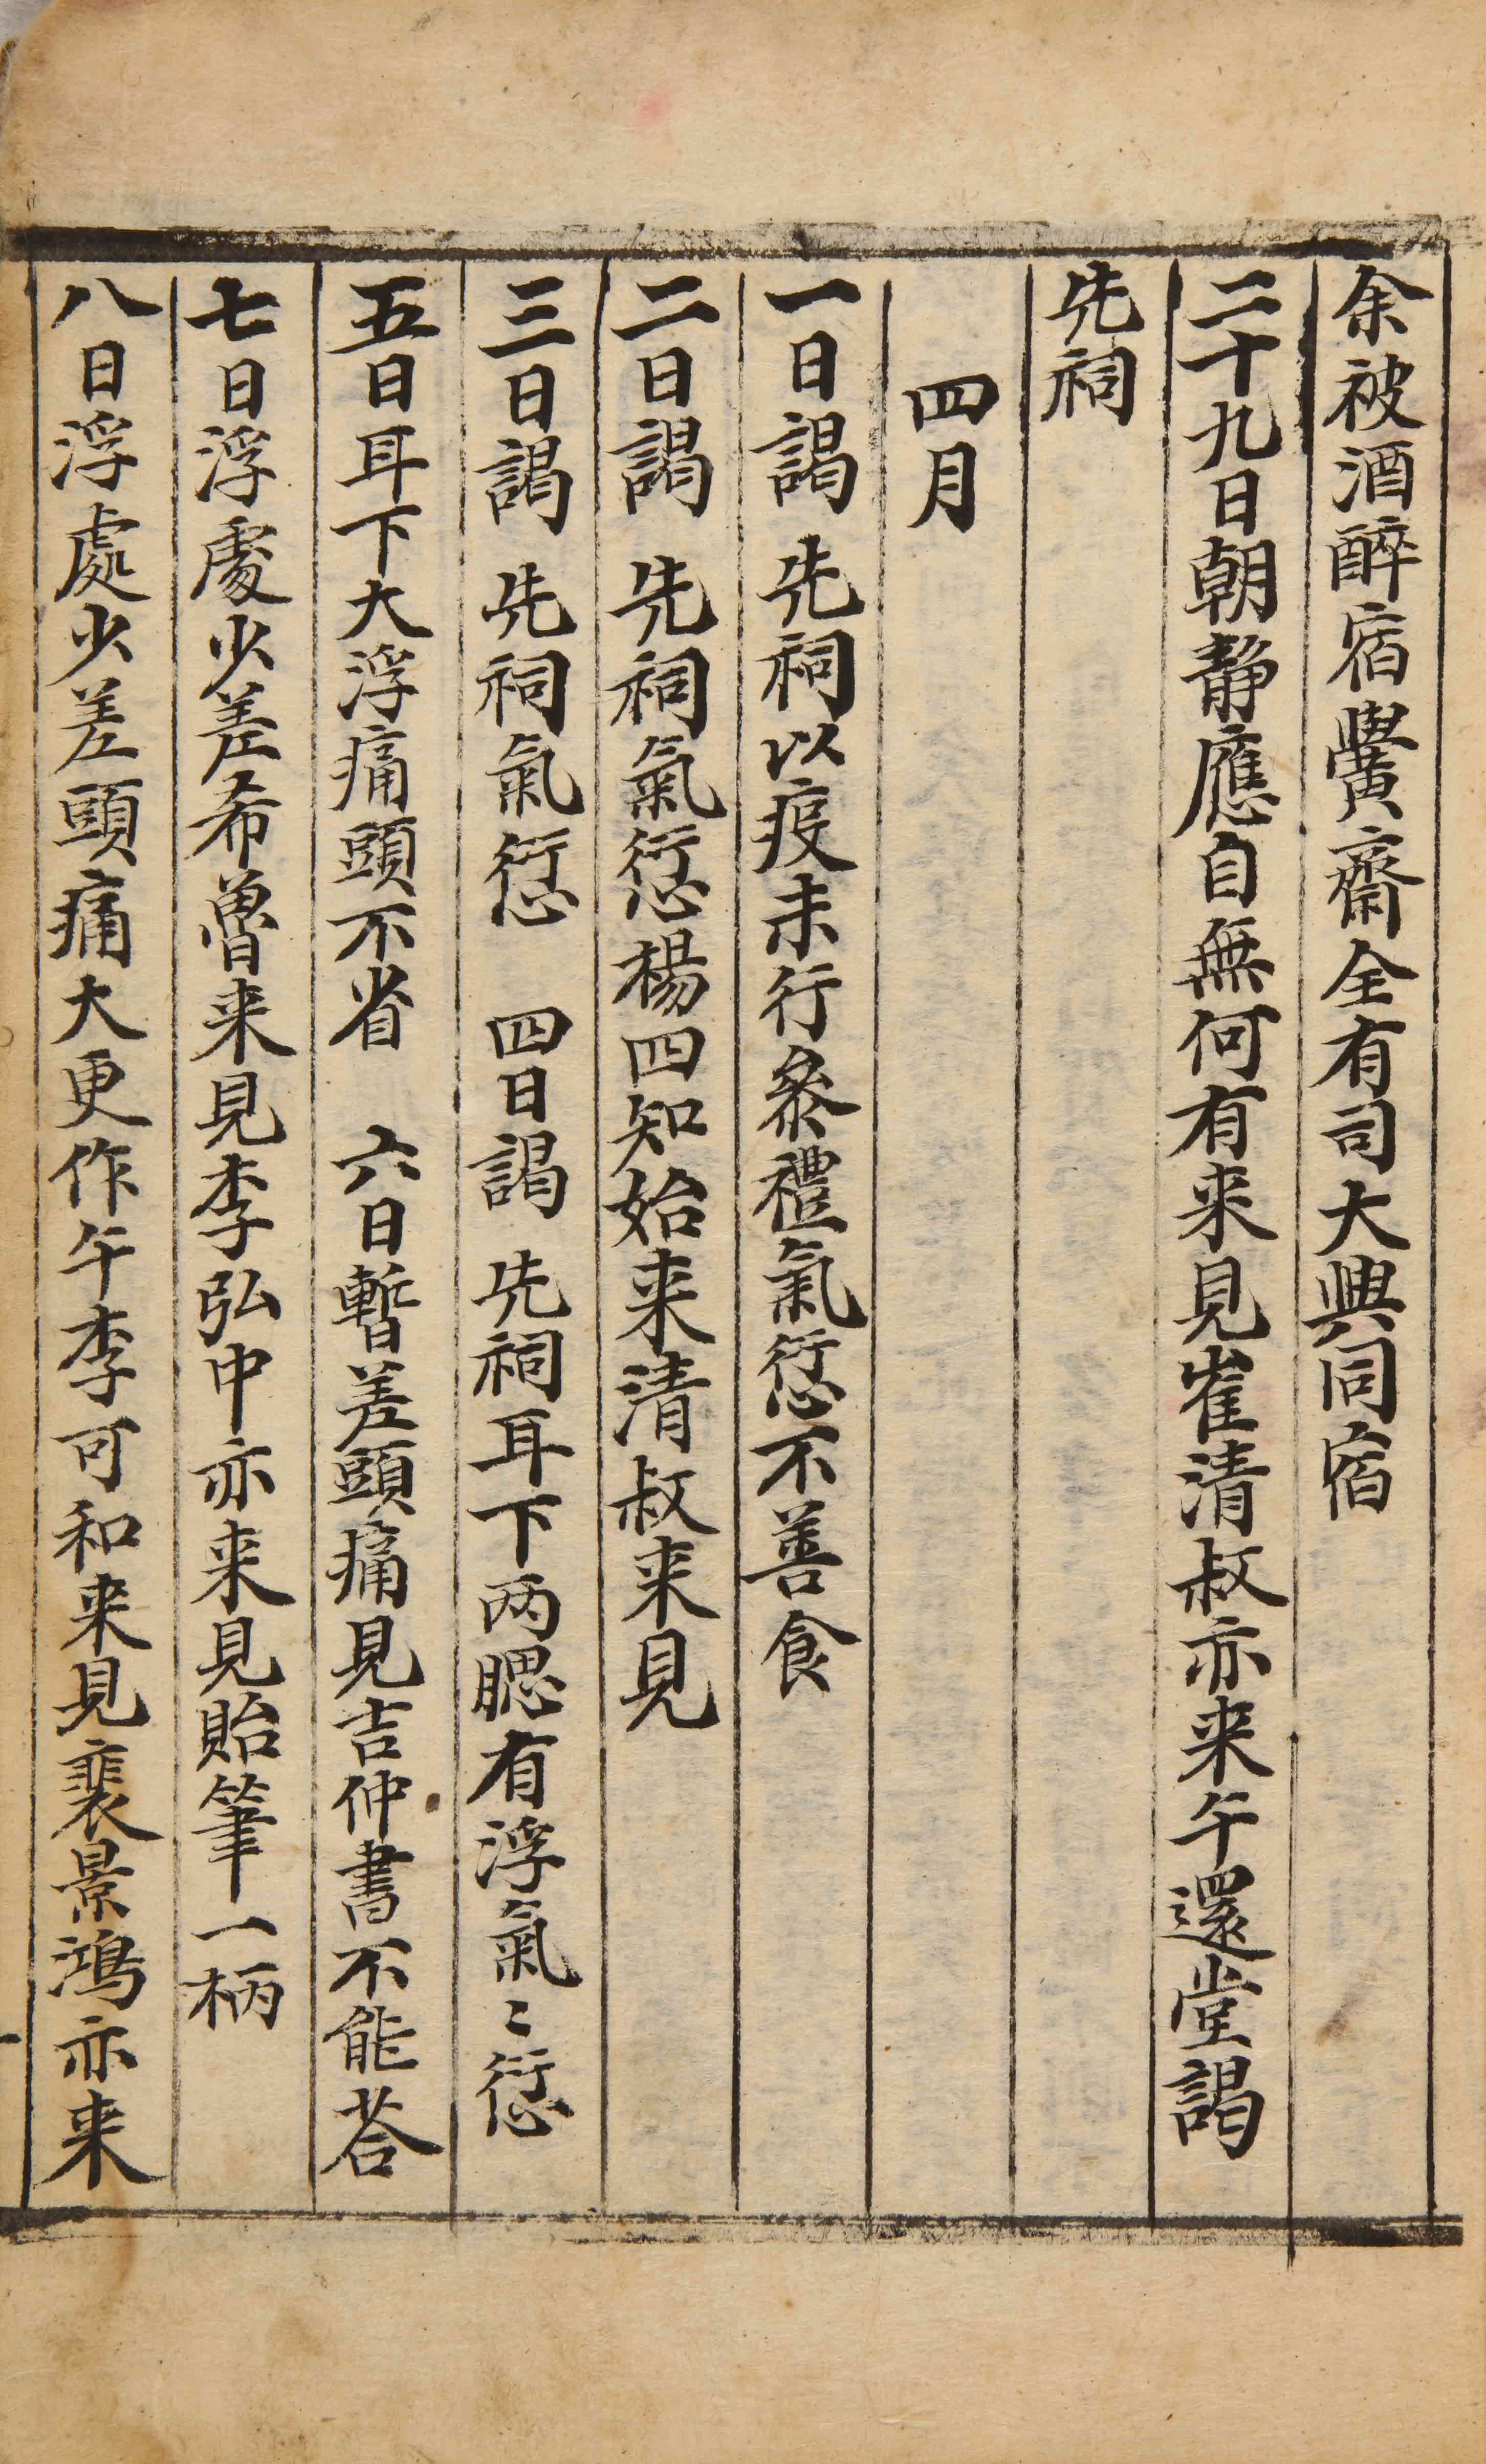 余被酒醉宿黌齋全有司大興同宿
二十九日朝静應自無何有来見崔清叔亦来午還堂謁
先祠
四月
一日謁 先祠以疫未行叅禮氣愆不善食
二日謁 先祠氣愆楊四知始来清叔来見
三日謁 先祠氣愆 四日謁 先祠耳下两腮有浮氣〻愆
五日耳下大浮痛頭不省 六日暫差頭痛見吉仲書不能荅
七日浮處少差希魯来見李弘中亦来見貽筆一柄
八日浮處少差頭痛大更作午李可和来見裴景鴻亦来